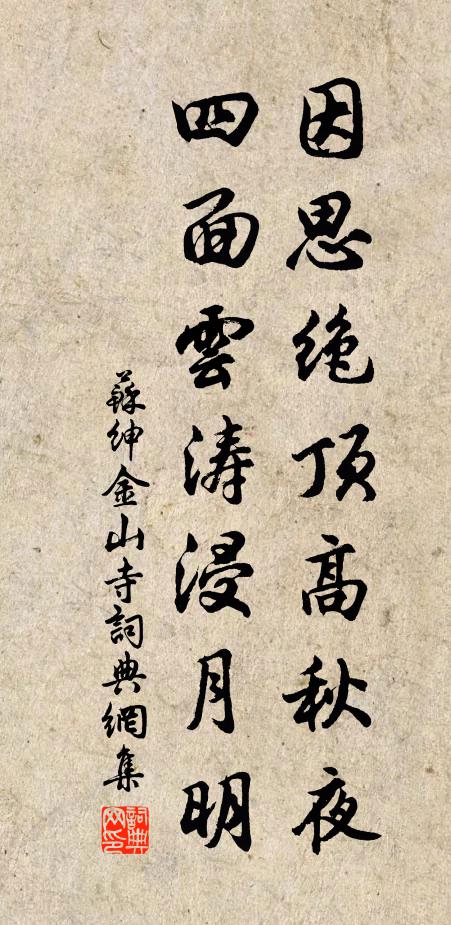 因思绝顶高秋夜
四面雲涛浸月明
蘇紳金山寺詞典網集
詞典網印